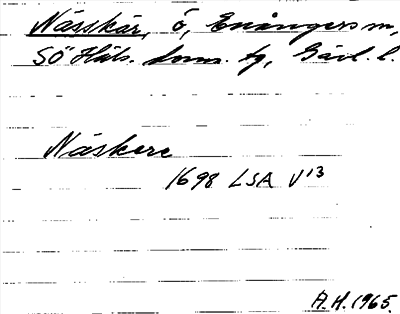 Nässkär, ö, Enångers sn,
SÖ Häls. doms. tg, Gävl. l.
Näskere
1698 LSA V13
A.H. 1965.